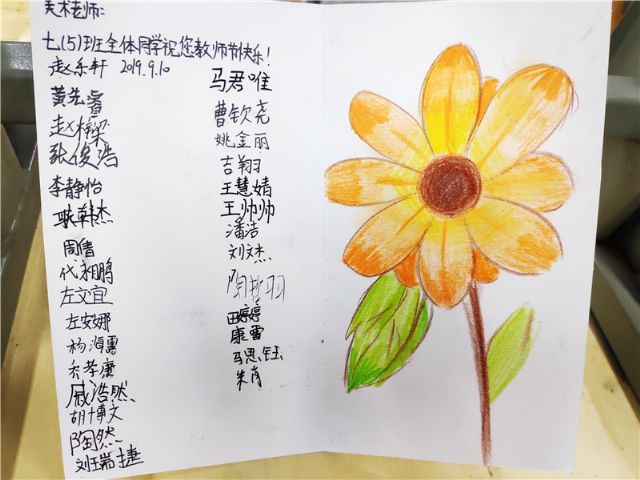 美术老师：
七(5)班全体同学祝您教师节快乐！
赵乐轩 2019.9.10
马君唯
赵梓梁
张俊浩
李静怡
耿韩杰
周倩
代相鹏
左文宜
左安娜
杨海露
戚浩然
胡博文
陶然
刘玉端捷
曹钦尧
姚金丽
吉翔羽
王慧婧
王帅帅
潘洁
刘文杰
陶哲羽
田婷婷
康雪
马思钰
朱肖